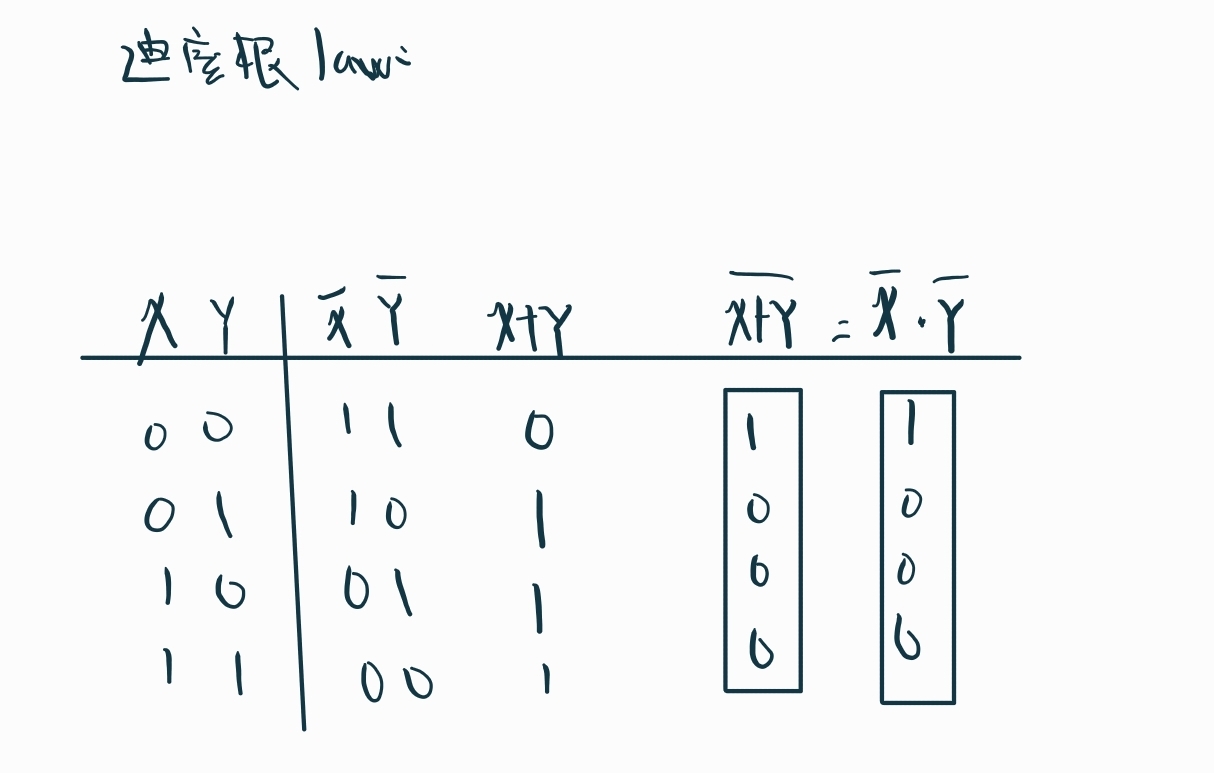 迪摩根 law:
X Y X̅ Y̅ X+Y X̅+̅Y̅ = X̅ · Y̅
0 0 1 1 0 1 1
0 1 1 0 1 0 0
1 0 0 1 1 0 0
1 1 0 0 1 0 0